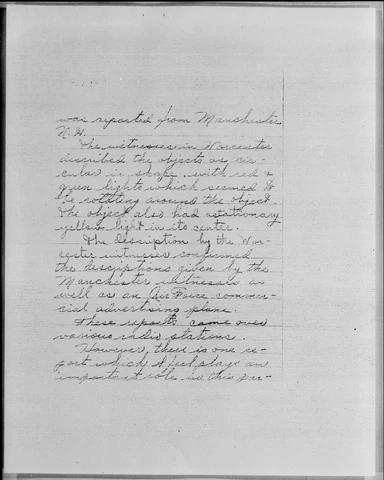 was reported from Manchester
N.H.
The witnesses in Worcester
discribed the objects as cir-
cular in shape, with red &
green lights which seemed to
be rotating around the object.
The object also had a stationary
yellow light in its center.
The discription by the Wor-
cester witnesses confirmed
the descriptions given by the
Manchester witnesses as
well as an Air Force commer-
cial advertising plane.
These reports came over
various radio stations.
However, there is one re-
port which I feel plays an
important role in this par-